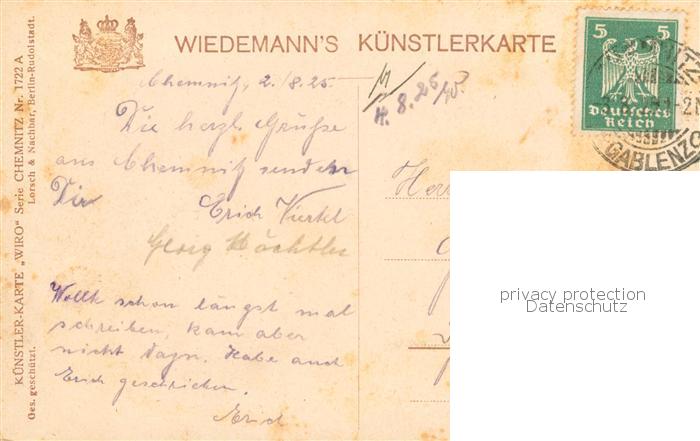 WIEDEMANN'S KÜNSTLERKARTE
KÜNSTLER-KARTE „WIRO" Serie CHEMNITZ Nr. 1722 A
Lorsch & Nachbar, Berlin-Rudolstadt.
Ges. geschützt.
5 5
Deutsches
Reich
GABLENZ
Chemnitz 2./8.25.
4. 8. 25
Die herzl. Grüße
aus Chemnitz senden
Dir
Erich Viertel
Georg
Wollte schon längst mal
schreiben, kam aber
nicht dazu. Habe auch
Erich geschrieben.
Herr
privacy protection
Datenschutz